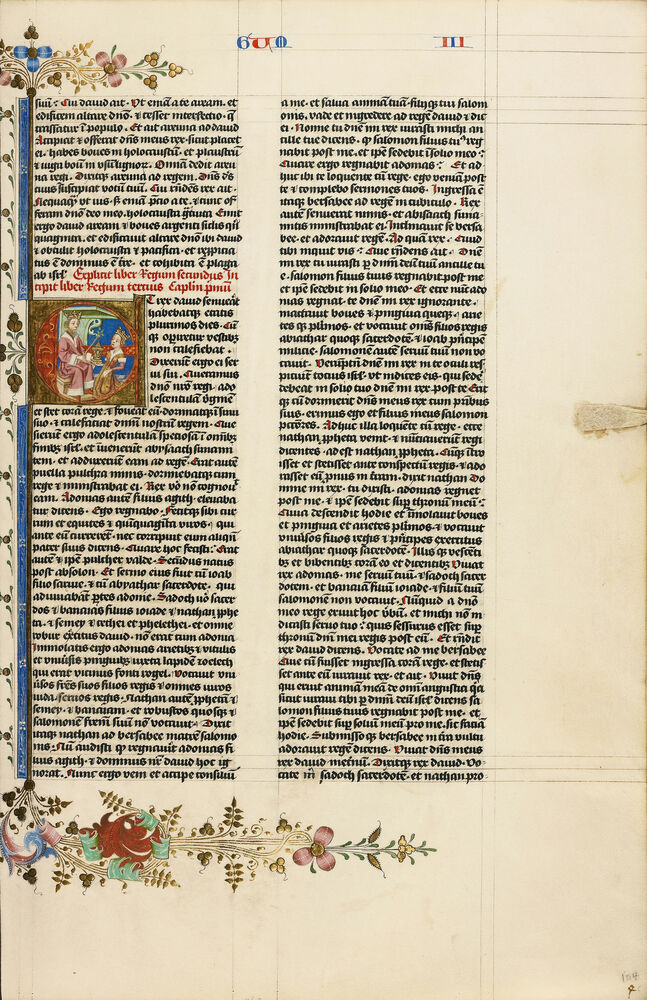 GUM III
suū? Cui dauid ait. Ut emā a te aream. et
edificem altare dn̄o. & cesset interfectio. q̄
crassatur ī populo. Et ait areuna ad dauid
Accipiat & offerat dn̄s meus rex. sicut placet
ei. habes boues in holocaustū. et plaustrū
& iuga boū in usū lignor. Omnia dedit areu
na regi. Dixitq; areuna ad regem. Dn̄s ds̄
tuus suscipiat votū tuū. Cui rn̄dēs rex ait.
Nequaq̄ ut uis. S; emā p̄cio a te. & nūc of
feram dn̄o deo meo holocausta gͣtuita. Emit
ergo dauid aream & boues argenti siclis qī
quaginta. et edificauit altare dn̄o ibi dauid
& obtulit holocausta & pacifica. et repicia
tus ē dominus ē tr̄e. et cohibita ē plaga
ab isrl̄. Explicit liber Regum secundus In
cipit liber Regum tertius Caplm̄ p̄mū
Et rex dauid senuerat
habebatq; etatis
plurimos dies. Cū
q; operiretur vestib;
non calefiebat.
Dixerūt ergo ei ser
ui sui. Queramus
dn̄o nr̄o regi. ado
lescentulā v̄gīnē
et stet corā rege. & foueat eū dormiatq; ī sinu
suo. & calefaciat dn̄m nostrū regem. Que
sierūt ergo adolescentulā speciosā ī om̄ib;
finib; isrl̄. et inuenerūt abysach sunami
tem. et adduxerūt eam ad regē. Erat autē
puella pulchra nimis. dormiebatq; cum
rege & ministrabat ei. Rex v̄o nō cognouit
eam. Adonias autē filius agith eleuaba
tur dicens. Ego regnabo. Fecitq; sibi cur
rum et equites & quīquagīta viros. qui
ante eū currerēt. nec corripuit eum aliqn̄
pater suus dicens. Quare hoc fecisti? Erat
autē & ip̄e pulcher valde. Secūdus natus
post absolon. Et sermo eius fuit cū ioab
filio saruie. & cū abyathar sacerdote. qui
adiuuabāt p̄tes adonie. Sadoch v̄o sacer
dos & banaias filius ioiade & nathan pphe
ta. & semey & cerhei et phelethei. et omne
robur exercitus dauid. nō erat cum adonia
Immolatis ergo adonias arietib; & vitulis
et vniūsis pinguib; iuxta lapidē zoelech
qui erat vicinus fonti rogel. Vocauit vni
ūsos fr̄es suos filios regis & omnes uiros
iuda seruos regis. Nathan autē pphetā &
semey. & banaiam. et robustos quosq; &
salomonē frēm suū nō vocauit. Dixit
itaq; nathan ad bersabee matrē salomo
nis. Nū audisti q̄ regnauit adonias fi
lius agith. & dominus nr̄ dauid hoc ig
norat. Nunc ergo veni et accipe consiliū
a me. et salua animā tuā. filijq; tui salom
onis. vade et ingredere ad regē dauid & dic
ei. Nonne tu dn̄e mi rex iurasti michi an
cille tue dicens. q̄ salomon filius tuus reg
nabit post me. et ip̄e sedebit ī solio meo?
Quare ergo regnabit adonias? Et ad
huc ibi te loquente cū rege. ego veniā post
te & complebo sermones tuos. Ingressa ē
itaq; bersabee ad regē in cubiculo. Rex
autē senuerat nimis. et abisach suna
mitis ministrabat ei. Inclinauit se bersa
bee. et adorauit regē. Ad quā rex. Quid
tibi inquit vis? Que rn̄dens ait. Dn̄e
mi rex tu iurasti p dn̄m deū tuū ancille tu
e. salomon filius tuus regnabit post me
et ip̄e sedebit in solio meo. Et ecce nūc ado
nias regnat. te dn̄e mi rex ignorante.
mactauit boues & pinguia queq;. arie
tes q; pl̄imos. et vocauit om̄s filios regis
abiathar quoq; sacerdotē. & ioab p̄ncipē
milicie. salomonē autē seruū tuū non vo
cauit. Verūptn̄ dn̄e mi rex in te oculi res
piciūt totius isrl̄. ut indices eis. qui sede
debeat in solio tuo dn̄e mi rex post te. Erit
q; cū dormierit dn̄s meus rex cum prībus
suis. erimus ego et filius meus salomon
pctōres. Adhuc illa loquēte cū rege. ecce
nathan ppheta venit. & nūtiauerūt regi
dicentes. adest nathan ppheta. Cūq; ītro
isset et stetisset ante conspectū regis. & ado
rasset eū pnus in tram. dixit nathan. Do
mine mi rex. tu dixisti. adonias regnet
post me. & ip̄e sedeat sup̄ thronū meū?
Quia descendit hodie et īmolauit boues
et pinguia et arietes pl̄imos. & vocauit
vniūsos filios regis & p̄ncipes exercitus
abiathar quoq; sacerdotē. Illis q; vescētī
b; et bibentib; corā eo et dicentib; Viuat
rex adonias. me seruū tuū. & sadoch sacer
dotem. et banaiā filiū ioiade. & filiū tuū
salomonē non vocauit. Nūquid a dn̄o
meo rege exiuit hoc v̄bū. et michi nō in
dicasti seruo tuo? quis sessurus esset sup̄
thronū dn̄i mei regis post eū. Et rn̄dit
rex dauid dicens. Vocate ad me bersabee
Que cū fuisset ingressa corā rege. et stetis
set ante eū iurauit rex. et ait. Viuit dn̄s
qui eruit animā meā de om̄i angustia q̄a
sicut iuraui tibi p dn̄m deū isrl̄ dicens sa
lomon filius tuus regnabit post me. et
ip̄e sedebit sup̄ soliū meū pro me. sic faciā
hodie. Submissoq; bersabee in tr̄a vultu
adorauit regē dicens. Viuat dn̄s meus
rex dauid inet̄nū. Dixitq; rex dauid. Vo
cate m̄ sadoch sacerdotē. et nathan pro